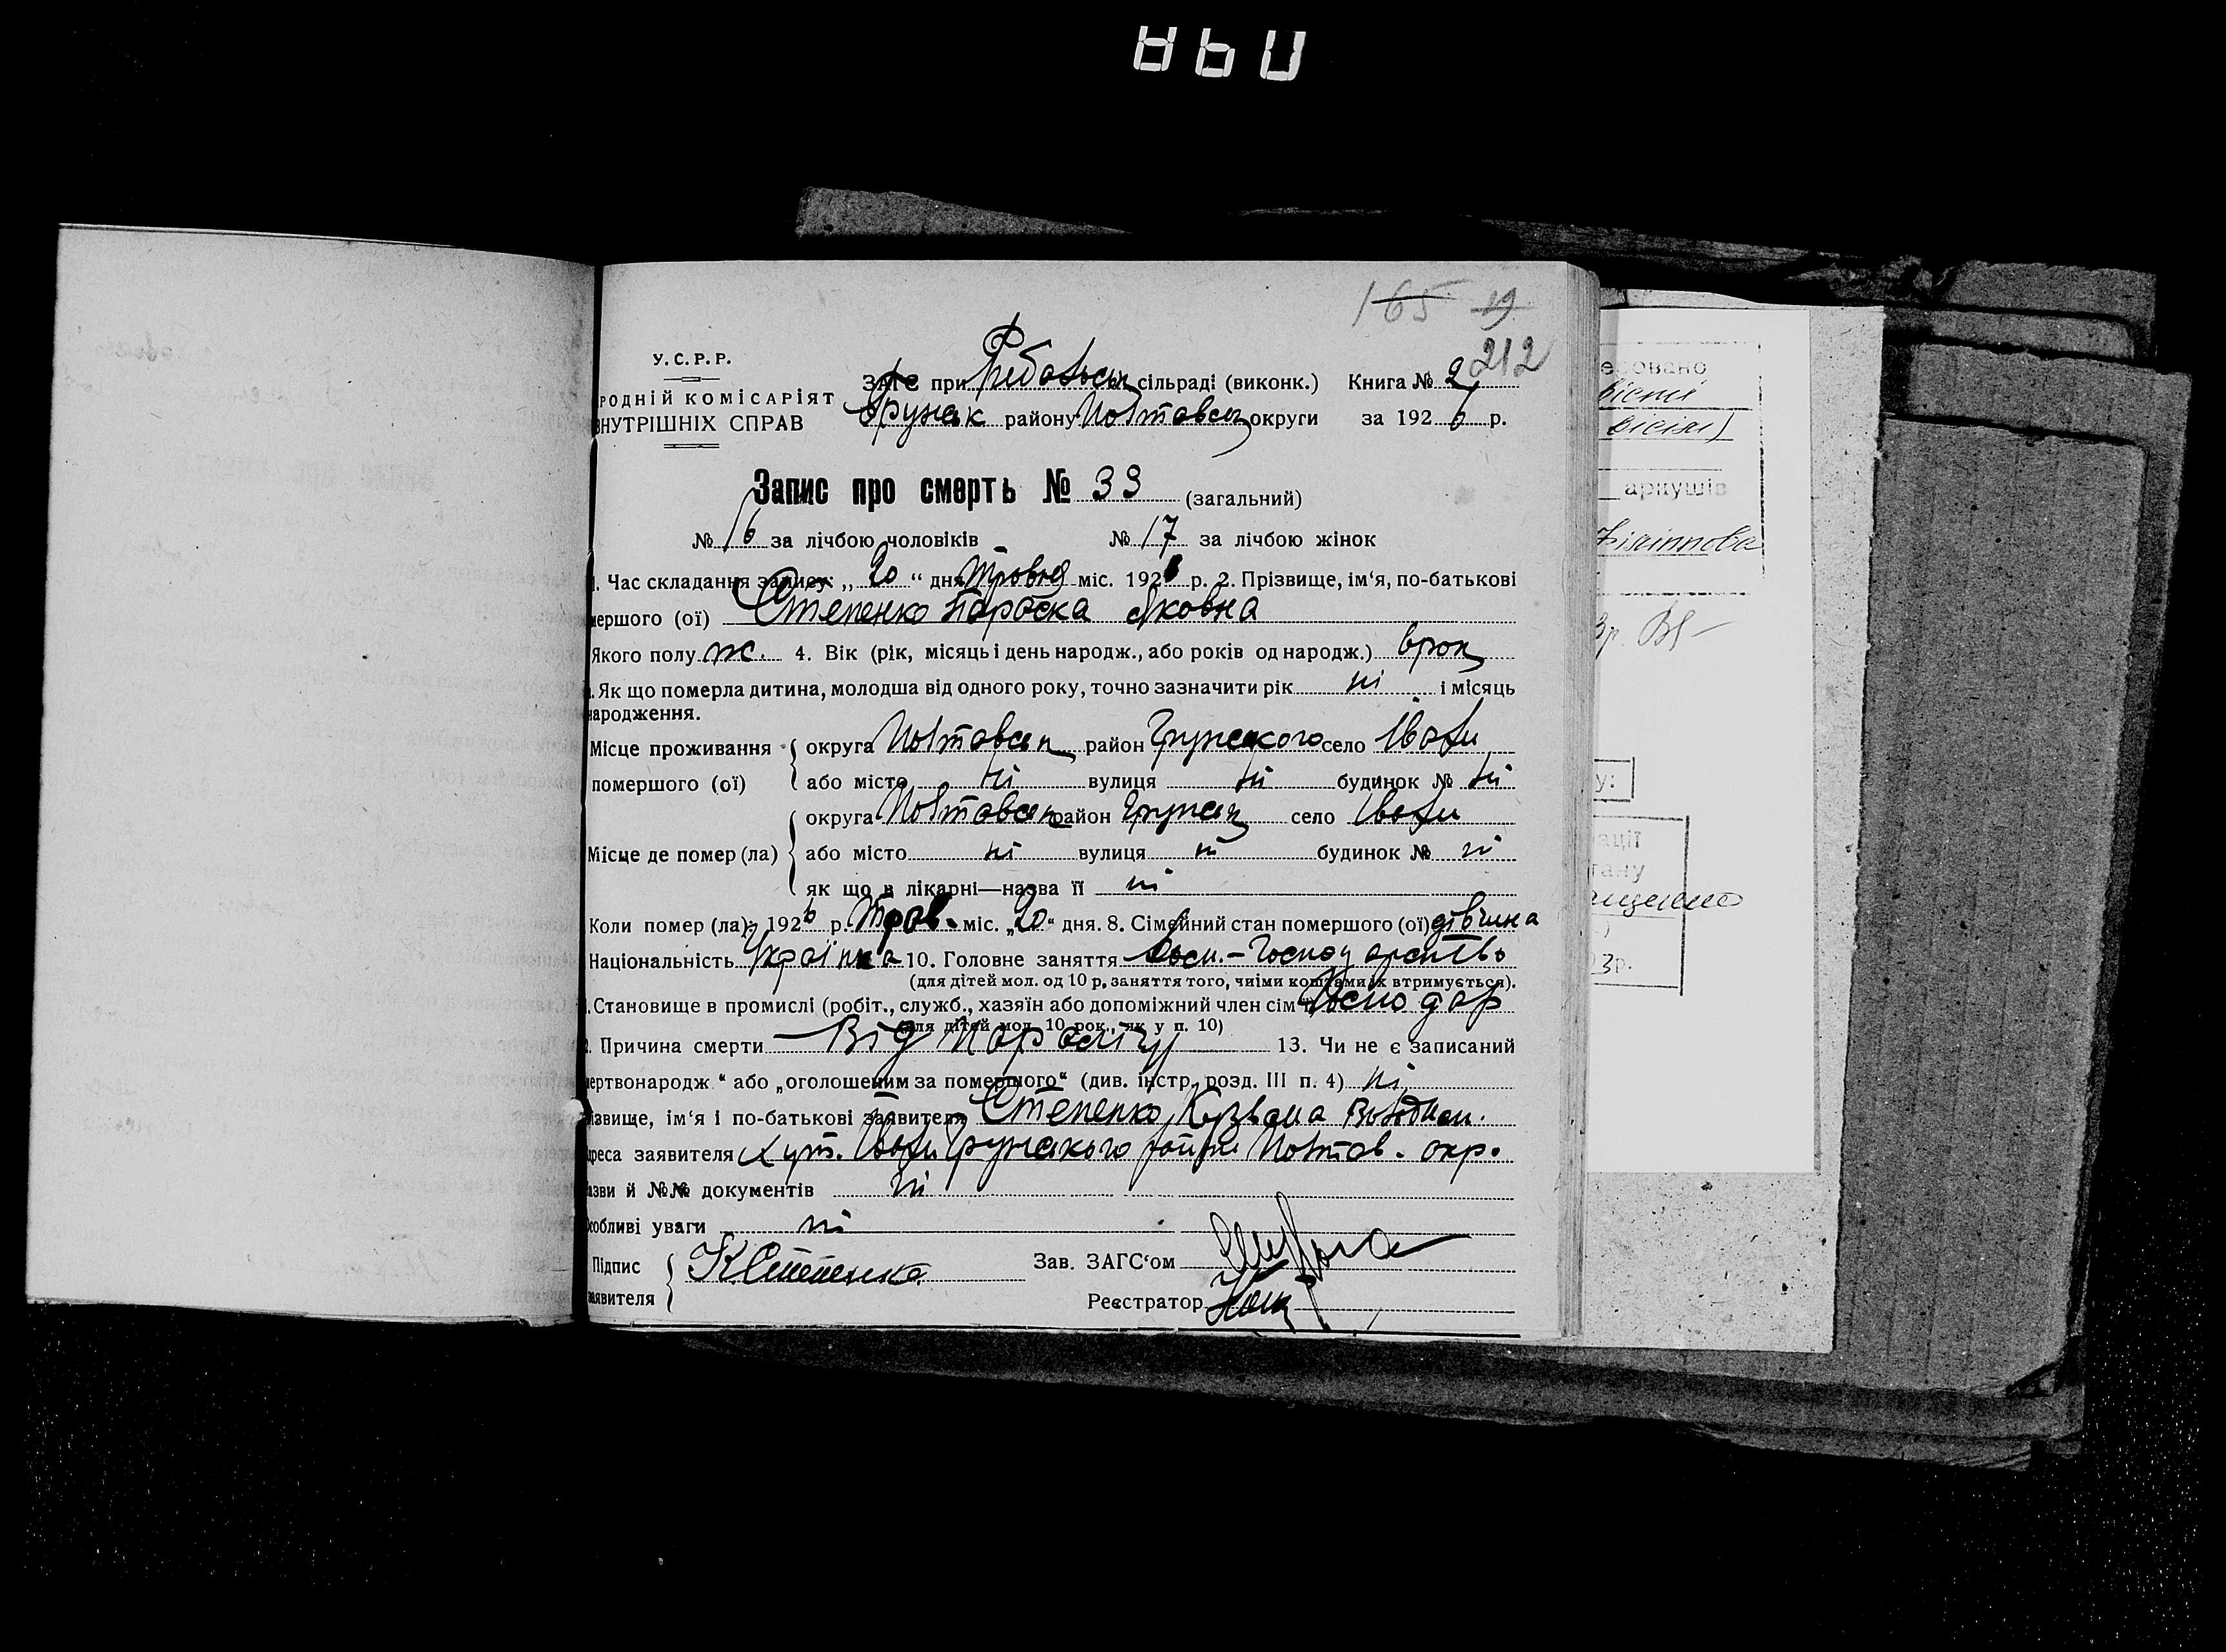 165 19
212
У.С.Р.Р.
РОДНІЙ КОМІСАРІЯТ
ВНУТРІШНІХ СПРАВ
ЗАГС при сільраді (виконк.) Книга № 2
району Полтавськ округи за 1926 р.
Запис про смерть № 33 (загальний)
№ 16 за лічбою чоловіків № 17 за лічбою жінок
1. Час складання запису: „ 20 “ дня Травня міс. 1926 р. 2. Прізвище, ім‘я, по-батькові
мершого (ої) Степенко Параска Яковна
Якого полу ж. 4. Вік (рік, місяць і день народж., або років од народж.)
. Як що померла дитина, молодша від одного року, точно зазначити рік ні і місяць
народження.
Місце проживання округа Полтавськ район Грунського село
помершого (ої) або місто ні вулиця ні будинок № ні
округа Полтавськ район Грунськ село
Місце де помер (ла) або місто ні вулиця ні будинок № ні
як що в лікарні—назва її ні
Коли помер (ла): 1926 р. Трав. міс. „20“ дня. 8. Сімейний стан помершого (ої) дівчина
Національність Українка 10. Головне заняття Сільськ.-Господарство
(для дітей мол. од 10 р, заняття того, чиїми коштами їх втримується).
. Становище в промислі (робіт., служб., хазяїн або допоміжний член сім‘ї) Господар
(для дітей мол. 10 рок., як у п. 10)
. Причина смерти Від 13. Чи не є записаний
мертвонародж.“ або „оголошеним за помершого“ (див. інстр. розд. III п. 4) ні
різвище, ім‘я і по-батькові заявителя Степенко Кузьма
дреса заявителя Хут. Грунського район Полтав. окр.
азви й №№ документів ні
собливі уваги ні
Підпис К Степенко Зав. ЗАГС‘ом
заявителя Реєстратор
аркушів